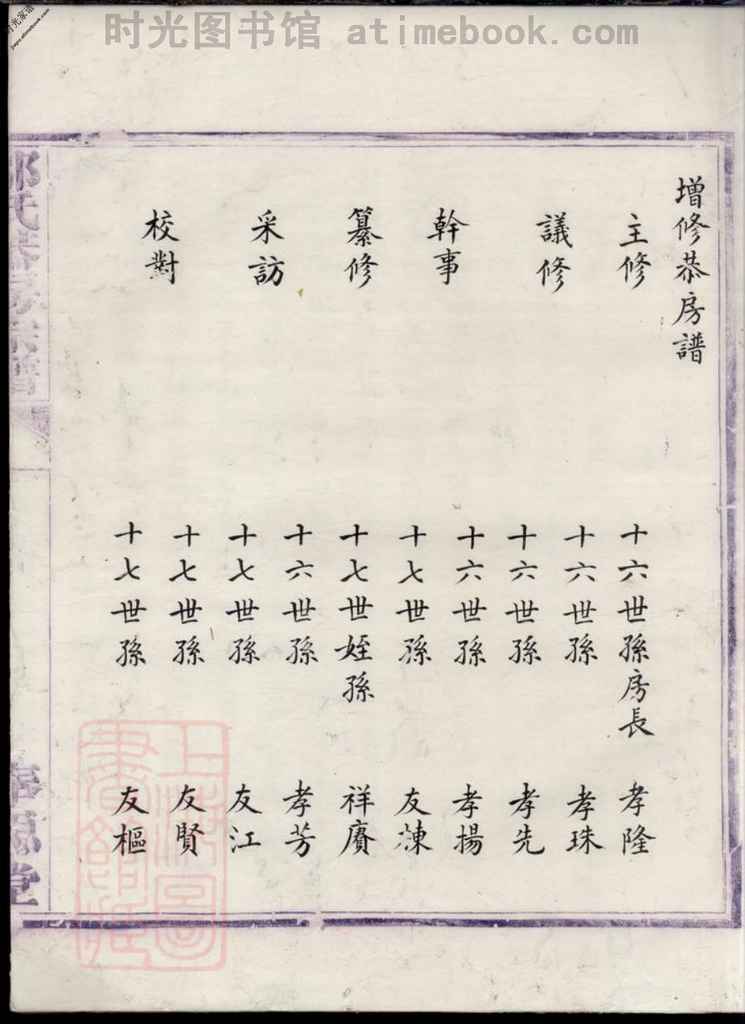 时光图书馆 atimebook.com
增修恭房譜
主修
十六世孫房長 孝隆
議修
十六世孫 孝珠
十六世孫 孝先
幹事
十六世孫 孝揚
十七世孫 友棟
纂修
十七世姪孫 祥賡
十六世孫 孝芳
采訪
十七世孫 友江
十七世孫 友賢
校對
十七世孫 友樞